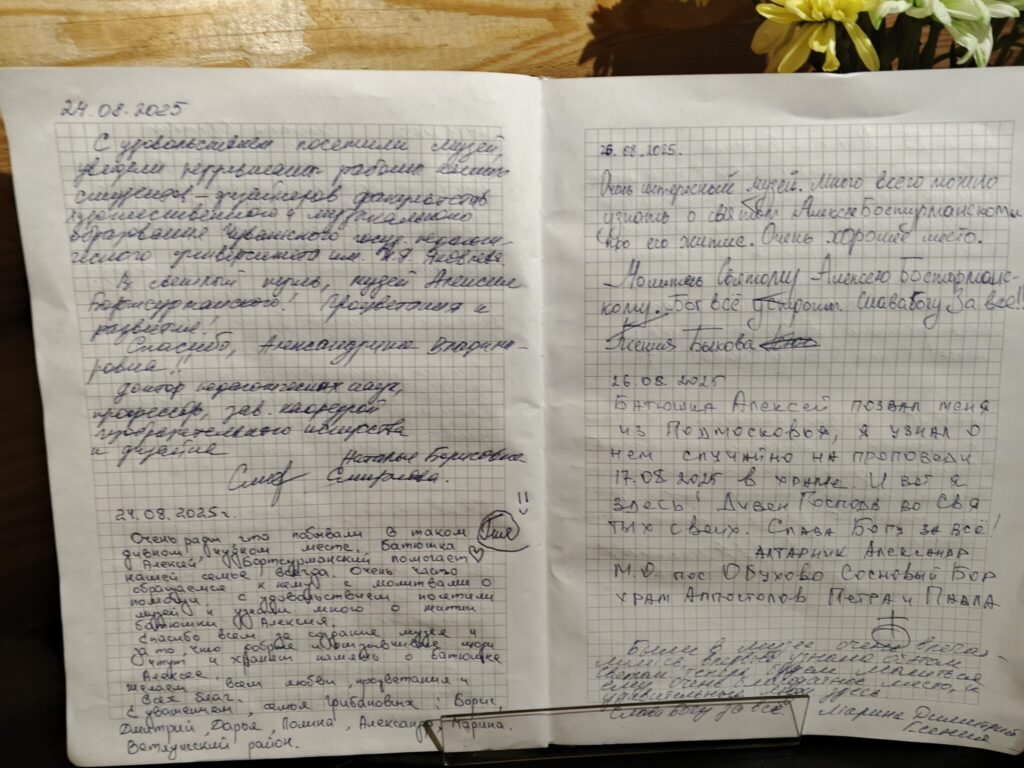 24.08.2025
С удовольствием посетили музей,
увидели первые работы
студентов – дизайнеров факультетов
художественного и музыкального
образования Чувашского госуд. педагоги-
ческого университета им. И.Я. Яковлева.
В светлый путь, музей Алексия
Бортсурманского! Процветания и
развития!
Спасибо, Александрина Владими-
ровна!!
доктор педагогических наук,
профессор, зав. кафедрой
изобразительного искусства
и дизайна
Наталья Борисовна
Смирнова.
24.08.2025г.
Очень рады что побывали в таком
дивном, чудном месте. Батюшка
Алексий Бортсурманский помогает
нашей семье всегда. Очень часто
обращаемся к нему с молитвами о
помощи. С удовольствием посетили
музей и узнали много о житии
батюшки Алексия.
Спасибо всем за создание музея и
за то, что добрые и отзывчивые люди
чтут и хранят память о батюшке
Алексее.
Желаем всем любви, процветания и
всех благ.
С уважением, семья Грибановых: Борис,
Дмитрий, Дарья, Полина, Александр, Марина.
Ветлужский район.
25.08.2025.
Очень интересный музей. Много всего можно
узнать о святом Алексее Бостурманском и
про его житие. Очень хорошее место.
Молитесь Святому Алексею Бостормаск-
кому. Бог всё устроит. Слава Богу За все!!
Ксения Быкова
26.08.2025
Батюшка Алексей позвал меня
из Подмосковья, я узнал о
нем случайно на проповеди
17.08.2025 в храме. И вот я
здесь! Дивен Господь во Свя
тых своих. Слава Богу за всё!
алтарник Александр
М.О. пос. Обухово Сосновый Бор
храм Аппостолов Петра и Павла
Были в музее очень впеча-
лились, впервые узнали об этом
святом, теперь будем молиться
ему. Очень благодатное место, и
удивительные люди здесь
Слава Богу за всё! Марина Димитрий
Ксения